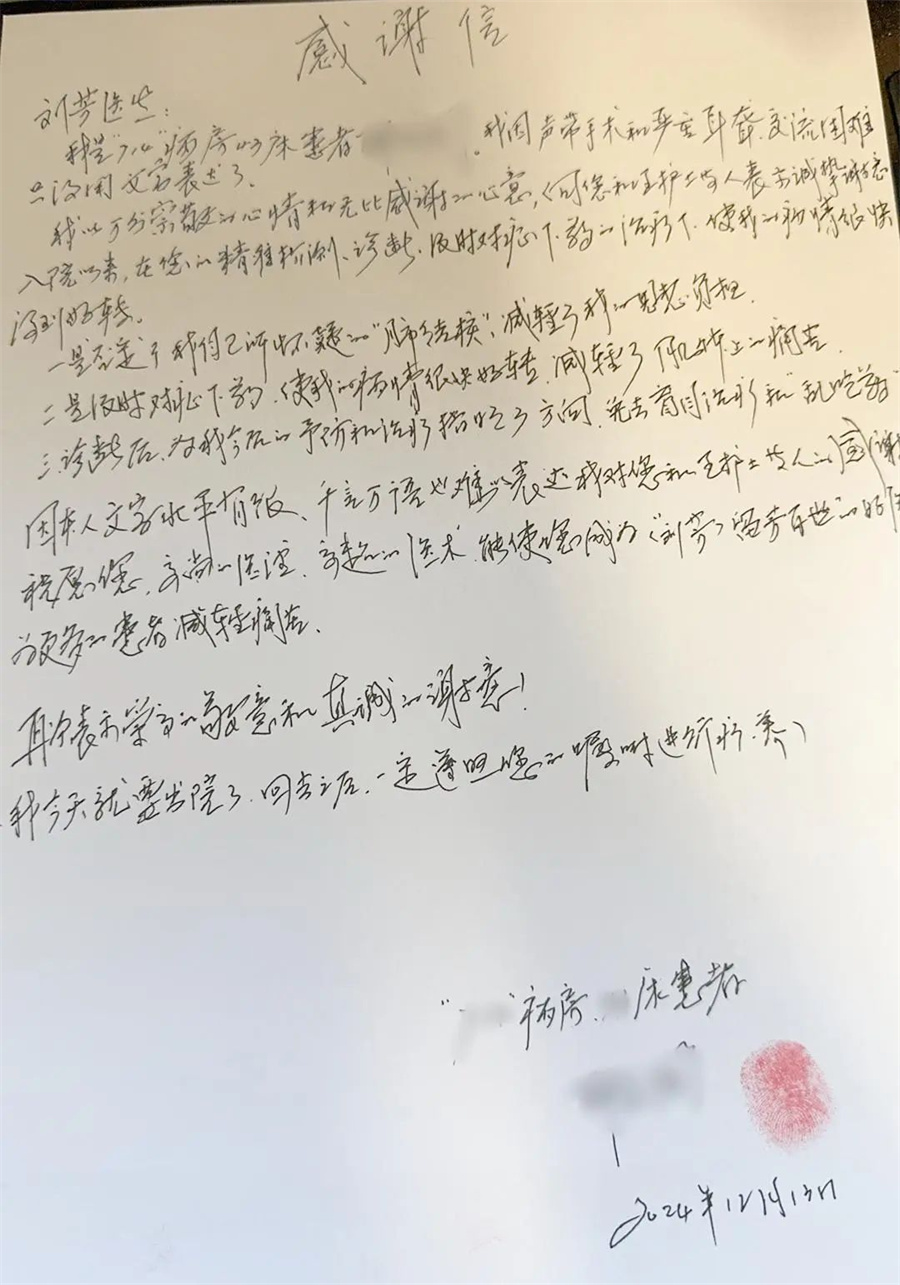 感谢信
刘芳医生:
我是"716"病房43床患者 。我因声带手术和严重耳聋、交流困难
只好用文字表达了。
我以万分崇敬的心情和无比感谢的心意,向您和王护士等人表示诚挚谢意
入院以来,在您的精准检测、诊断、及时对症下药的治疗下,使我的病情很快
得到好转。
一是否定了我自己所怀疑的"肺结核",减轻了我的思想负担.
二是及时对症下药,使我的病情很快好转,减轻了肌体上的痛苦.
三.诊断后,为我今后的予防和治疗指明了方向,免去盲目治疗和"乱吃药"
因本人文字水平有限、千言万语也难以表达我对您和王护士等人的感谢
祝愿您,高尚的医德,高超的医术,能使您成为(刘芳)留芳百世的好医
为更多的患者减轻痛苦.
再次表示崇高的敬意和真诚的谢意!
我今天就要出院了.回去之后,一定遵照您的嘱咐进行疗养
" "病房. 床患者
2024年12月13日